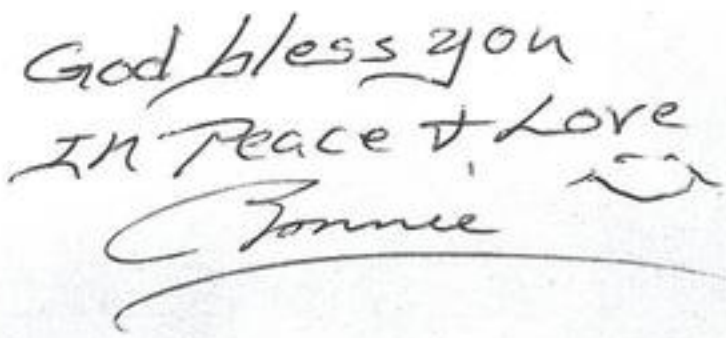 God bless you
In Peace & Love
Bonnie